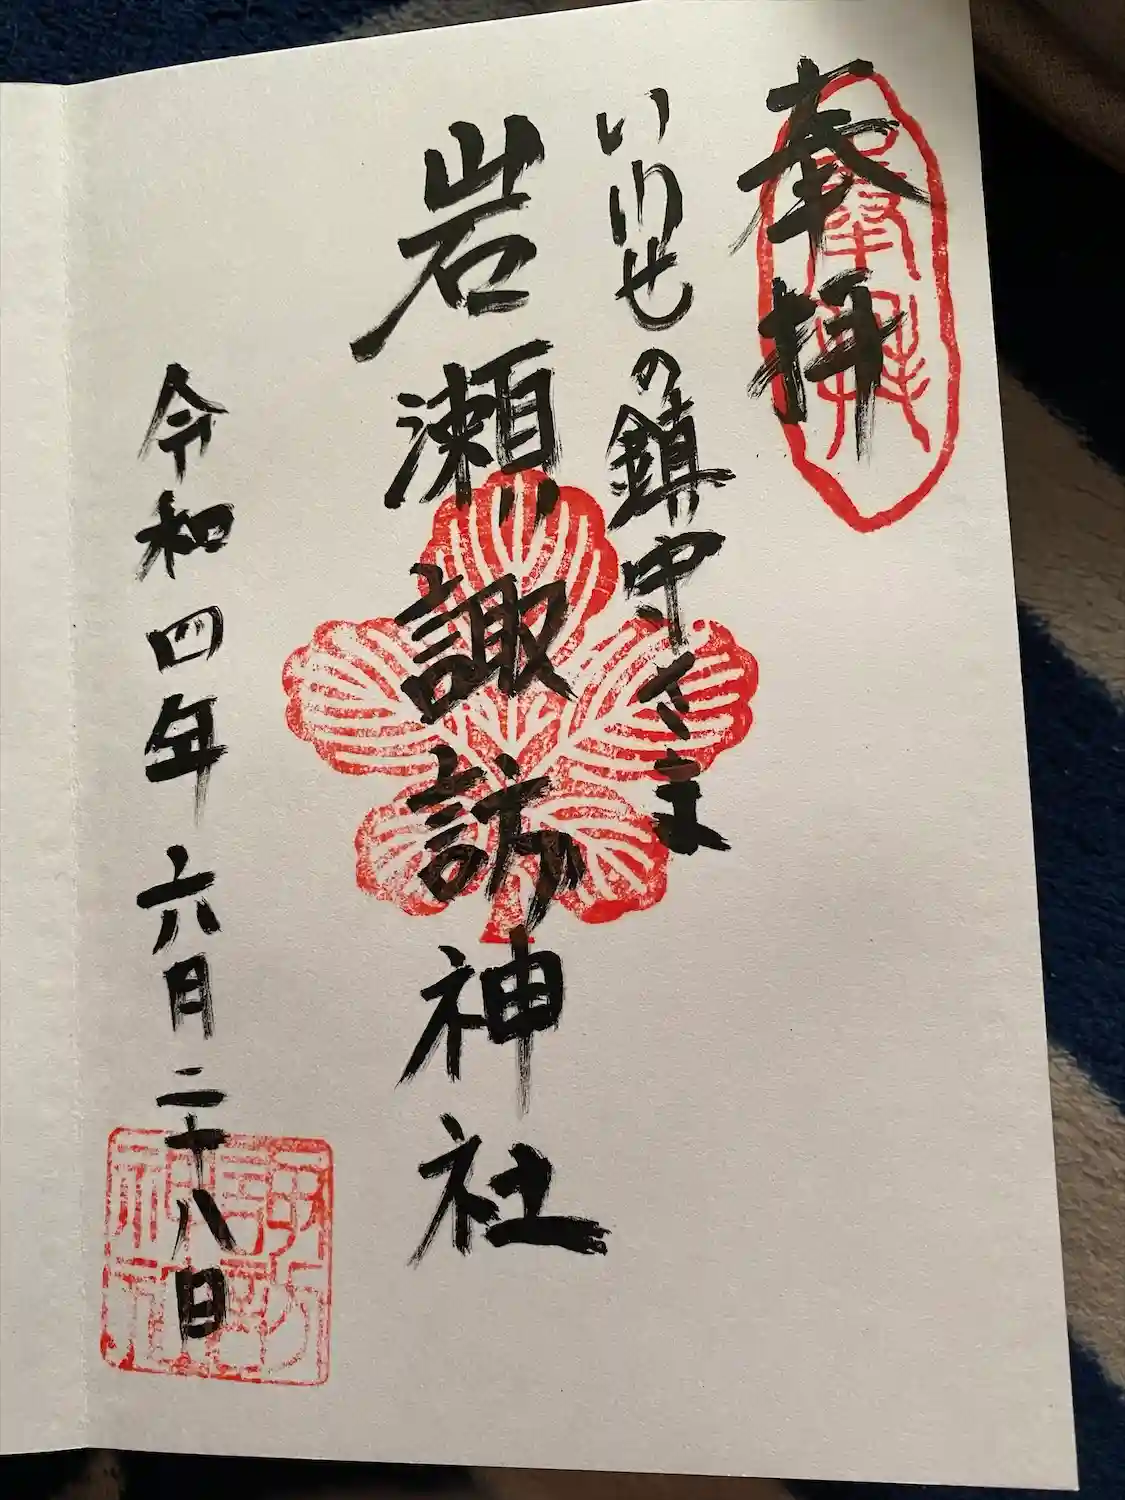 奉拝
奉拝
いわせの鎮守さま
岩瀬諏訪神社
令和四年六月二十八日
諏訪
神社